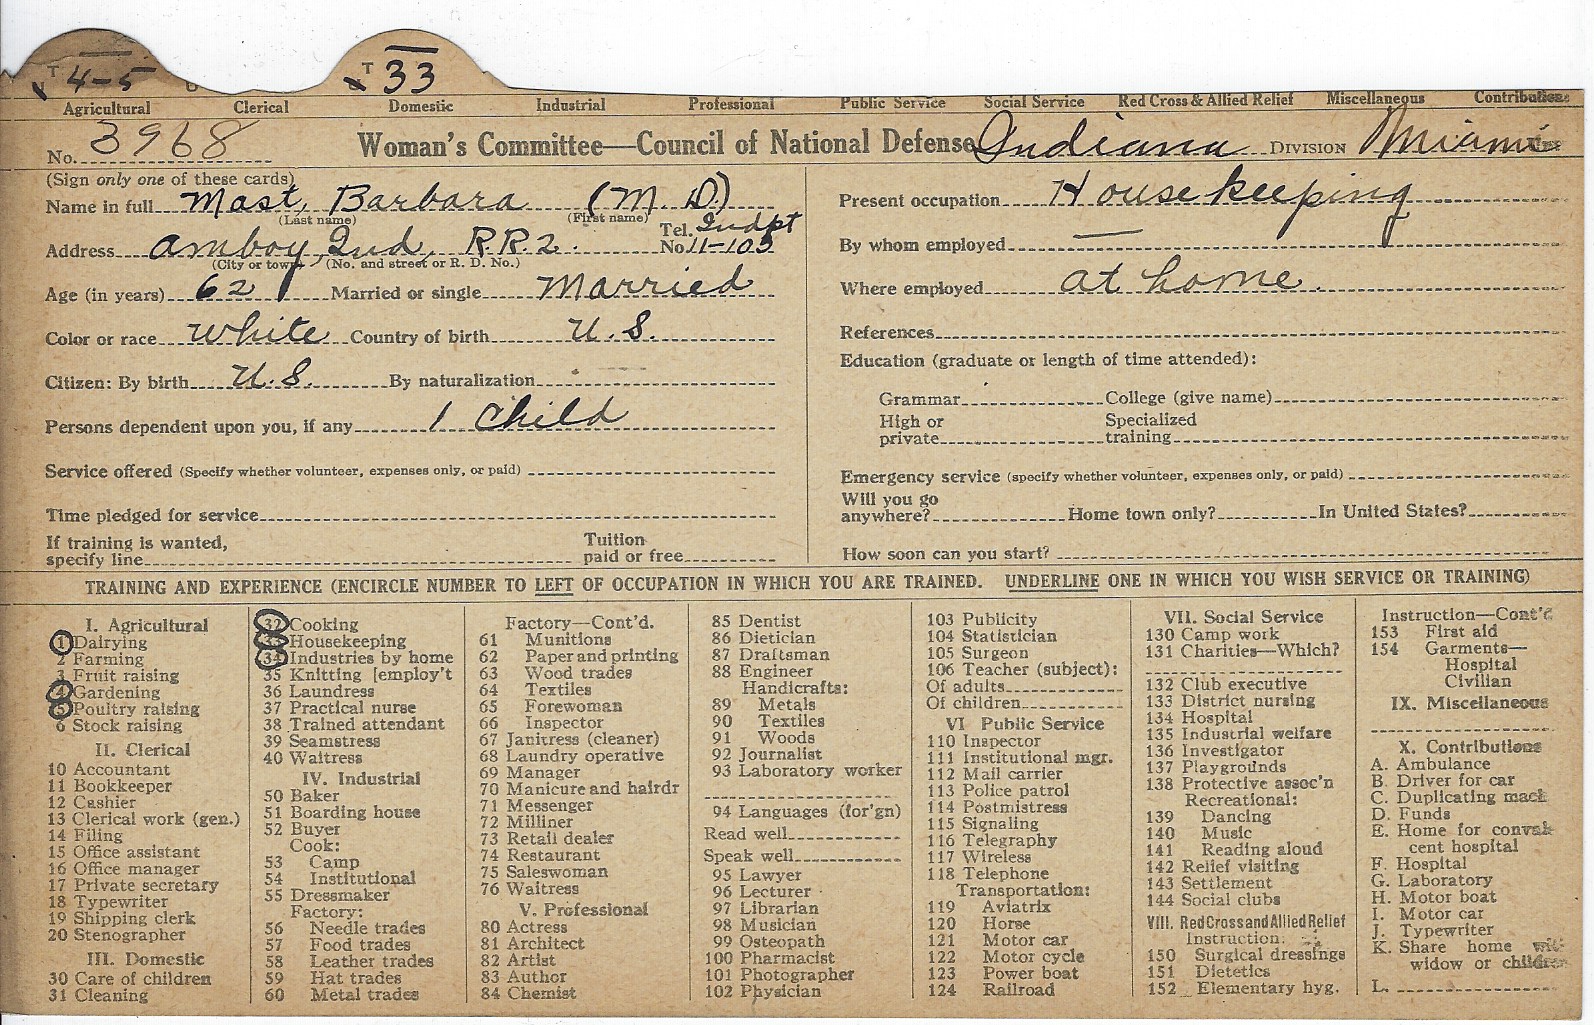 T 4-5 T 33
Agricultural Clerical Domestic Industrial Professional Public Service Social Service Red Cross & Allied Relief Miscellaneous Contributions
No. 3968 Woman's Committee—Council of National Defense Indiana DIVISION Miami
(Sign only one of these cards)
Name in full Mast, Barbara (M. D.)
(Last name) (First name)
Address Amboy, Ind. R.R.2. Tel. No. Indpt 11-103
(City or town) (No. and street or R. D. No.)
Age (in years) 62 Married or single Married
Color or race White Country of birth U.S.
Citizen: By birth U.S. By naturalization
Persons dependent upon you, if any 1 Child
Service offered (Specify whether volunteer, expenses only, or paid)
Time pledged for service
If training is wanted, specify line Tuition paid or free
Present occupation Housekeeping
By whom employed —
Where employed at home.
References
Education (graduate or length of time attended):
Grammar College (give name)
High or private Specialized training
Emergency service (specify whether volunteer, expenses only, or paid)
Will you go anywhere? Home town only? In United States?
How soon can you start?
TRAINING AND EXPERIENCE (ENCIRCLE NUMBER TO LEFT OF OCCUPATION IN WHICH YOU ARE TRAINED. UNDERLINE ONE IN WHICH YOU WISH SERVICE OR TRAINING)
I. Agricultural
1 Dairying
2 Farming
3 Fruit raising
4 Gardening
5 Poultry raising
6 Stock raising
II. Clerical
10 Accountant
11 Bookkeeper
12 Cashier
13 Clerical work (gen.)
14 Filing
15 Office assistant
16 Office manager
17 Private secretary
18 Typewriter
19 Shipping clerk
20 Stenographer
III. Domestic
30 Care of children
31 Cleaning
32 Cooking
33 Housekeeping
34 Industries by home
35 Knitting [employ't
36 Laundress
37 Practical nurse
38 Trained attendant
39 Seamstress
40 Waitress
IV. Industrial
50 Baker
51 Boarding house
52 Buyer
Cook:
53 Camp
54 Institutional
55 Dressmaker
Factory:
56 Needle trades
57 Food trades
58 Leather trades
59 Hat trades
60 Metal trades
Factory—Cont'd.
61 Munitions
62 Paper and printing
63 Wood trades
64 Textiles
65 Forewoman
66 Inspector
67 Janitress (cleaner)
68 Laundry operative
69 Manager
70 Manicure and hairdr
71 Messenger
72 Milliner
73 Retail dealer
74 Restaurant
75 Saleswoman
76 Waitress
V. Professional
80 Actress
81 Architect
82 Artist
83 Author
84 Chemist
85 Dentist
86 Dietician
87 Draftsman
88 Engineer
Handicrafts:
89 Metals
90 Textiles
91 Woods
92 Journalist
93 Laboratory worker
94 Languages (for'gn)
Read well
Speak well
95 Lawyer
96 Lecturer
97 Librarian
98 Musician
99 Osteopath
100 Pharmacist
101 Photographer
102 Physician
103 Publicity
104 Statistician
105 Surgeon
106 Teacher (subject):
Of adults
Of children
VI Public Service
110 Inspector
111 Institutional mgr.
112 Mail carrier
113 Police patrol
114 Postmistress
115 Signaling
116 Telegraphy
117 Wireless
118 Telephone
Transportation:
119 Aviatrix
120 Horse
121 Motor car
122 Motor cycle
123 Power boat
124 Railroad
VII. Social Service
130 Camp work
131 Charities—Which?
132 Club executive
133 District nursing
134 Hospital
135 Industrial welfare
136 Investigator
137 Playgrounds
138 Protective assoc'n
Recreational:
139 Dancing
140 Music
141 Reading aloud
142 Relief visiting
143 Settlement
144 Social clubs
VIII. Red Cross and Allied Relief
Instruction:
150 Surgical dressings
151 Dietetics
152 Elementary hyg.
Instruction—Cont'd
153 First aid
154 Garments—
Hospital
Civilian
IX. Miscellaneous
X. Contributions
A. Ambulance
B. Driver for car
C. Duplicating mach
D. Funds
E. Home for convales
cent hospital
F. Hospital
G. Laboratory
H. Motor boat
I. Motor car
J. Typewriter
K. Share home with
widow or children
L.